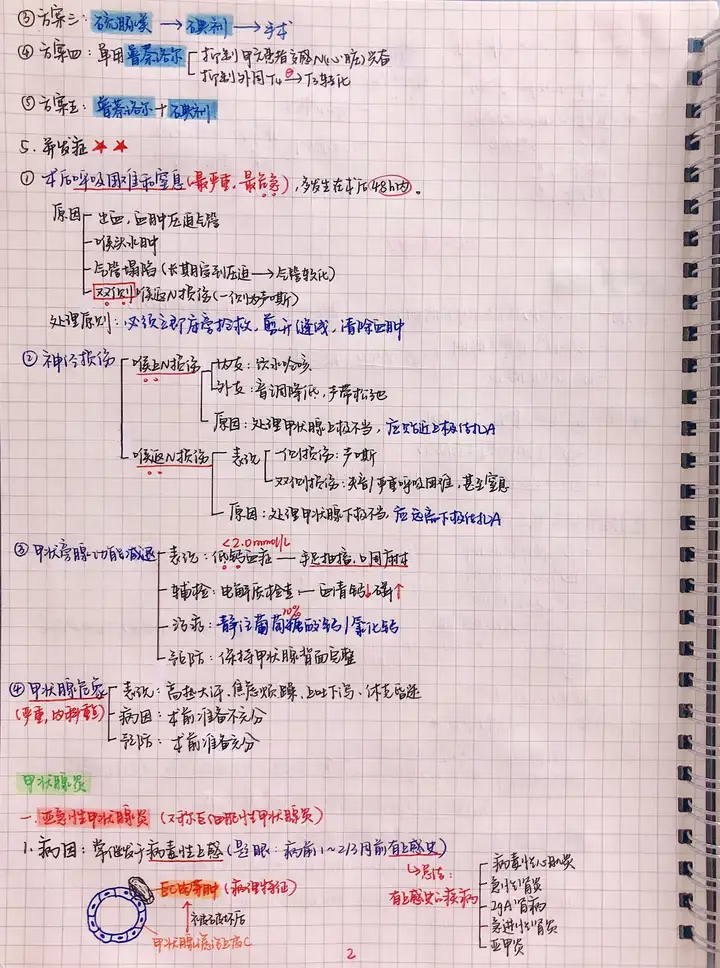 ③方案三：硫脲类 → 碘剂 → 手术
④方案四：单用普萘洛尔 抑制甲亢患者交感N(心脏)兴奋
抑制外周T4 ⊖→ T3转化
⑤方案五：普萘洛尔+碘剂
5. 并发症 ★★
①术后呼吸困难和窒息(最严重,最危急),多发生在术后48h内。
原因 出血,血肿压迫气管
喉头水肿
气管塌陷(长期受到压迫→气管软化)
双侧喉返N损伤(一侧为声嘶)
处理原则：必须立即床旁抢救,剪开缝线,清除血肿
②神经损伤 喉上N损伤 内支：饮水呛咳
外支：音调降低,声带松弛
原因：处理甲状腺上极不当,应贴近上极结扎A
喉返N损伤 表现 一侧损伤：声嘶
双侧损伤：失音/严重呼吸困难,甚至窒息
原因：处理甲状腺下极不当,应远离下极结扎A
<2.0mmol/L
③甲状旁腺功能减退 表现：低钙血症 — 手足抽搐,口周麻木
辅检：电解质检查,— 血清钙↓磷↑
治疗：静注10%葡萄糖酸钙/氯化钙
预防：保持甲状腺背面完整
④甲状腺危象 表现：高热大汗、焦虑烦躁、上吐下泻、休克昏迷
(严重,内科重点) 病因：术前准备不充分
预防：术前准备充分
甲状腺炎
一.亚急性甲状腺炎(又称巨细胞性甲状腺炎)
1. 病因：常继发于病毒性上感(题眼：病前1~2/3周前有上感史)
↳总结：
有上感史の疾病
病毒性心肌炎
急性肾炎
IgA肾病
急进性肾炎
亚甲炎
肉芽肿(病理特征)
被破坏后
甲状腺滤泡上皮C
2